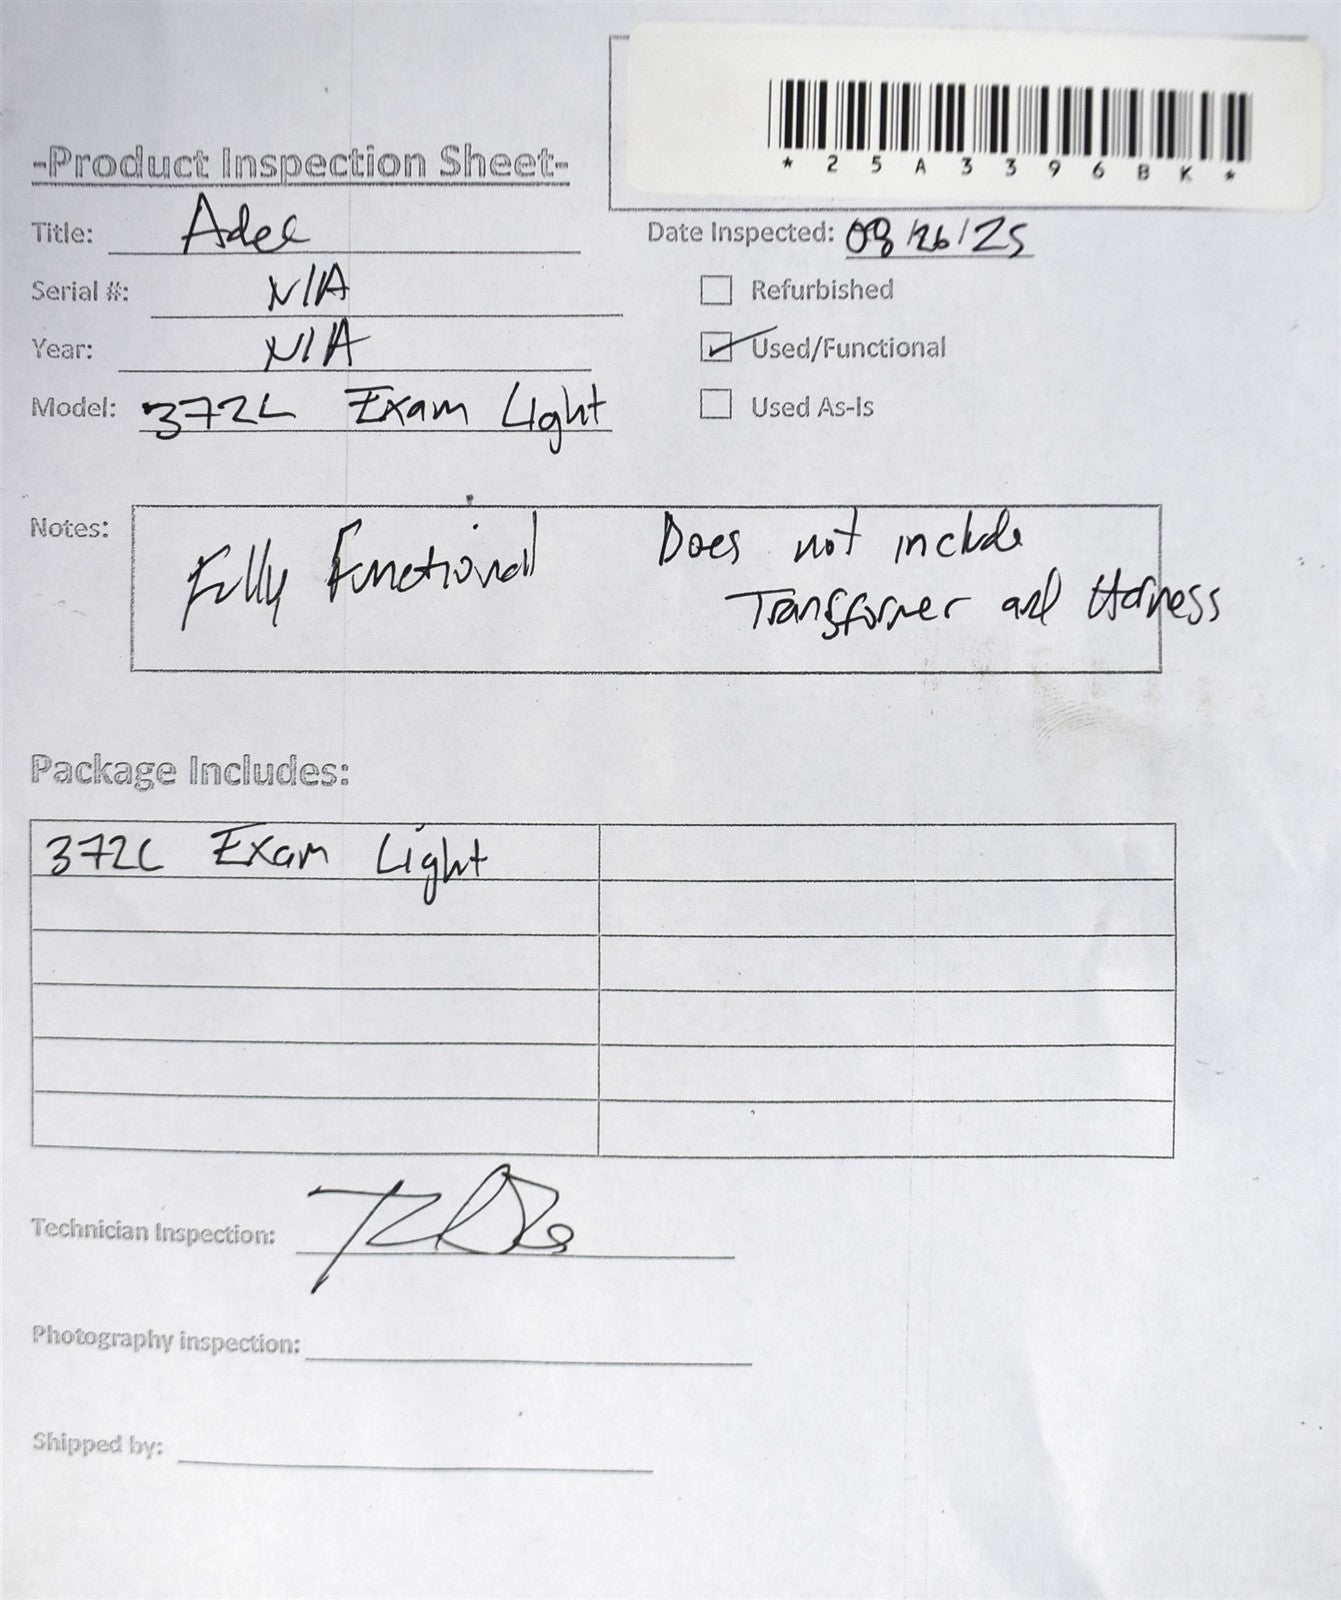 *25A3396BK*
-Product Inspection Sheet-
Title: Adec
Date Inspected: 08/26/25
Serial #: N/A
Refurbished
Year: N/A
Used/Functional
Model: 372L Exam Light
Used As-Is
Notes: Fully Functional Does not include
Transformer and Harness
Package Includes:
372L Exam Light
Technician Inspection:
Photography inspection:
Shipped by: